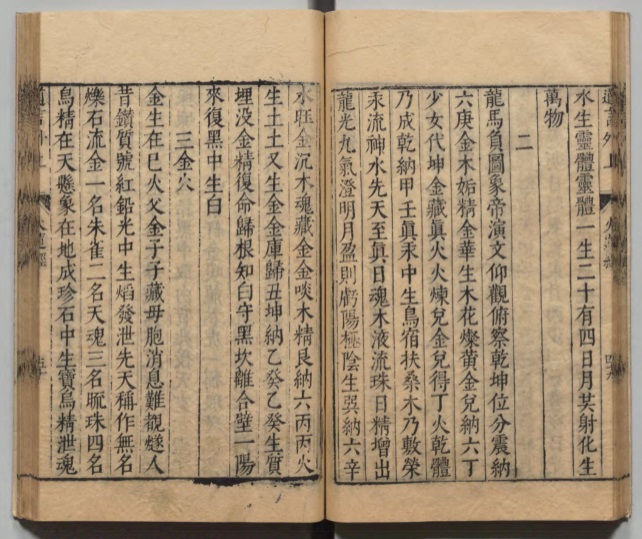 水生靈體靈體一生二十有四日月其射化生
萬物
二
龍馬負圖象帝演文仰觀俯察乾坤位分震納
六庚金木姤精金華生木花燦黃金兌納六丁
少女代坤金藏眞火火煉兌金兌得丁火乾體
乃成乾納甲壬眞汞中生鳥宿扶桑木乃敷榮
汞流神水先天至眞日魂木液流珠日精增出
龍光九氣澄明月盈則虧陽極陰生巽納六辛
水旺金沉木魂藏金金啖木精艮納六丙丙火
生土土又生金金庫歸丑坤納乙癸乙癸生質
埋没金精復命歸根知白守黑坎離合璧一陽
來復黑中生白
三金穴
金生在巳火父金子子藏母胞消息難觀燧人
昔鑚質號紅鉛光中生焰發泄先天稱作無名
爍石流金一名朱雀二名天魂三名流珠四名
鳥精在天懸象在地成珍石中生寶鳥精泄魂